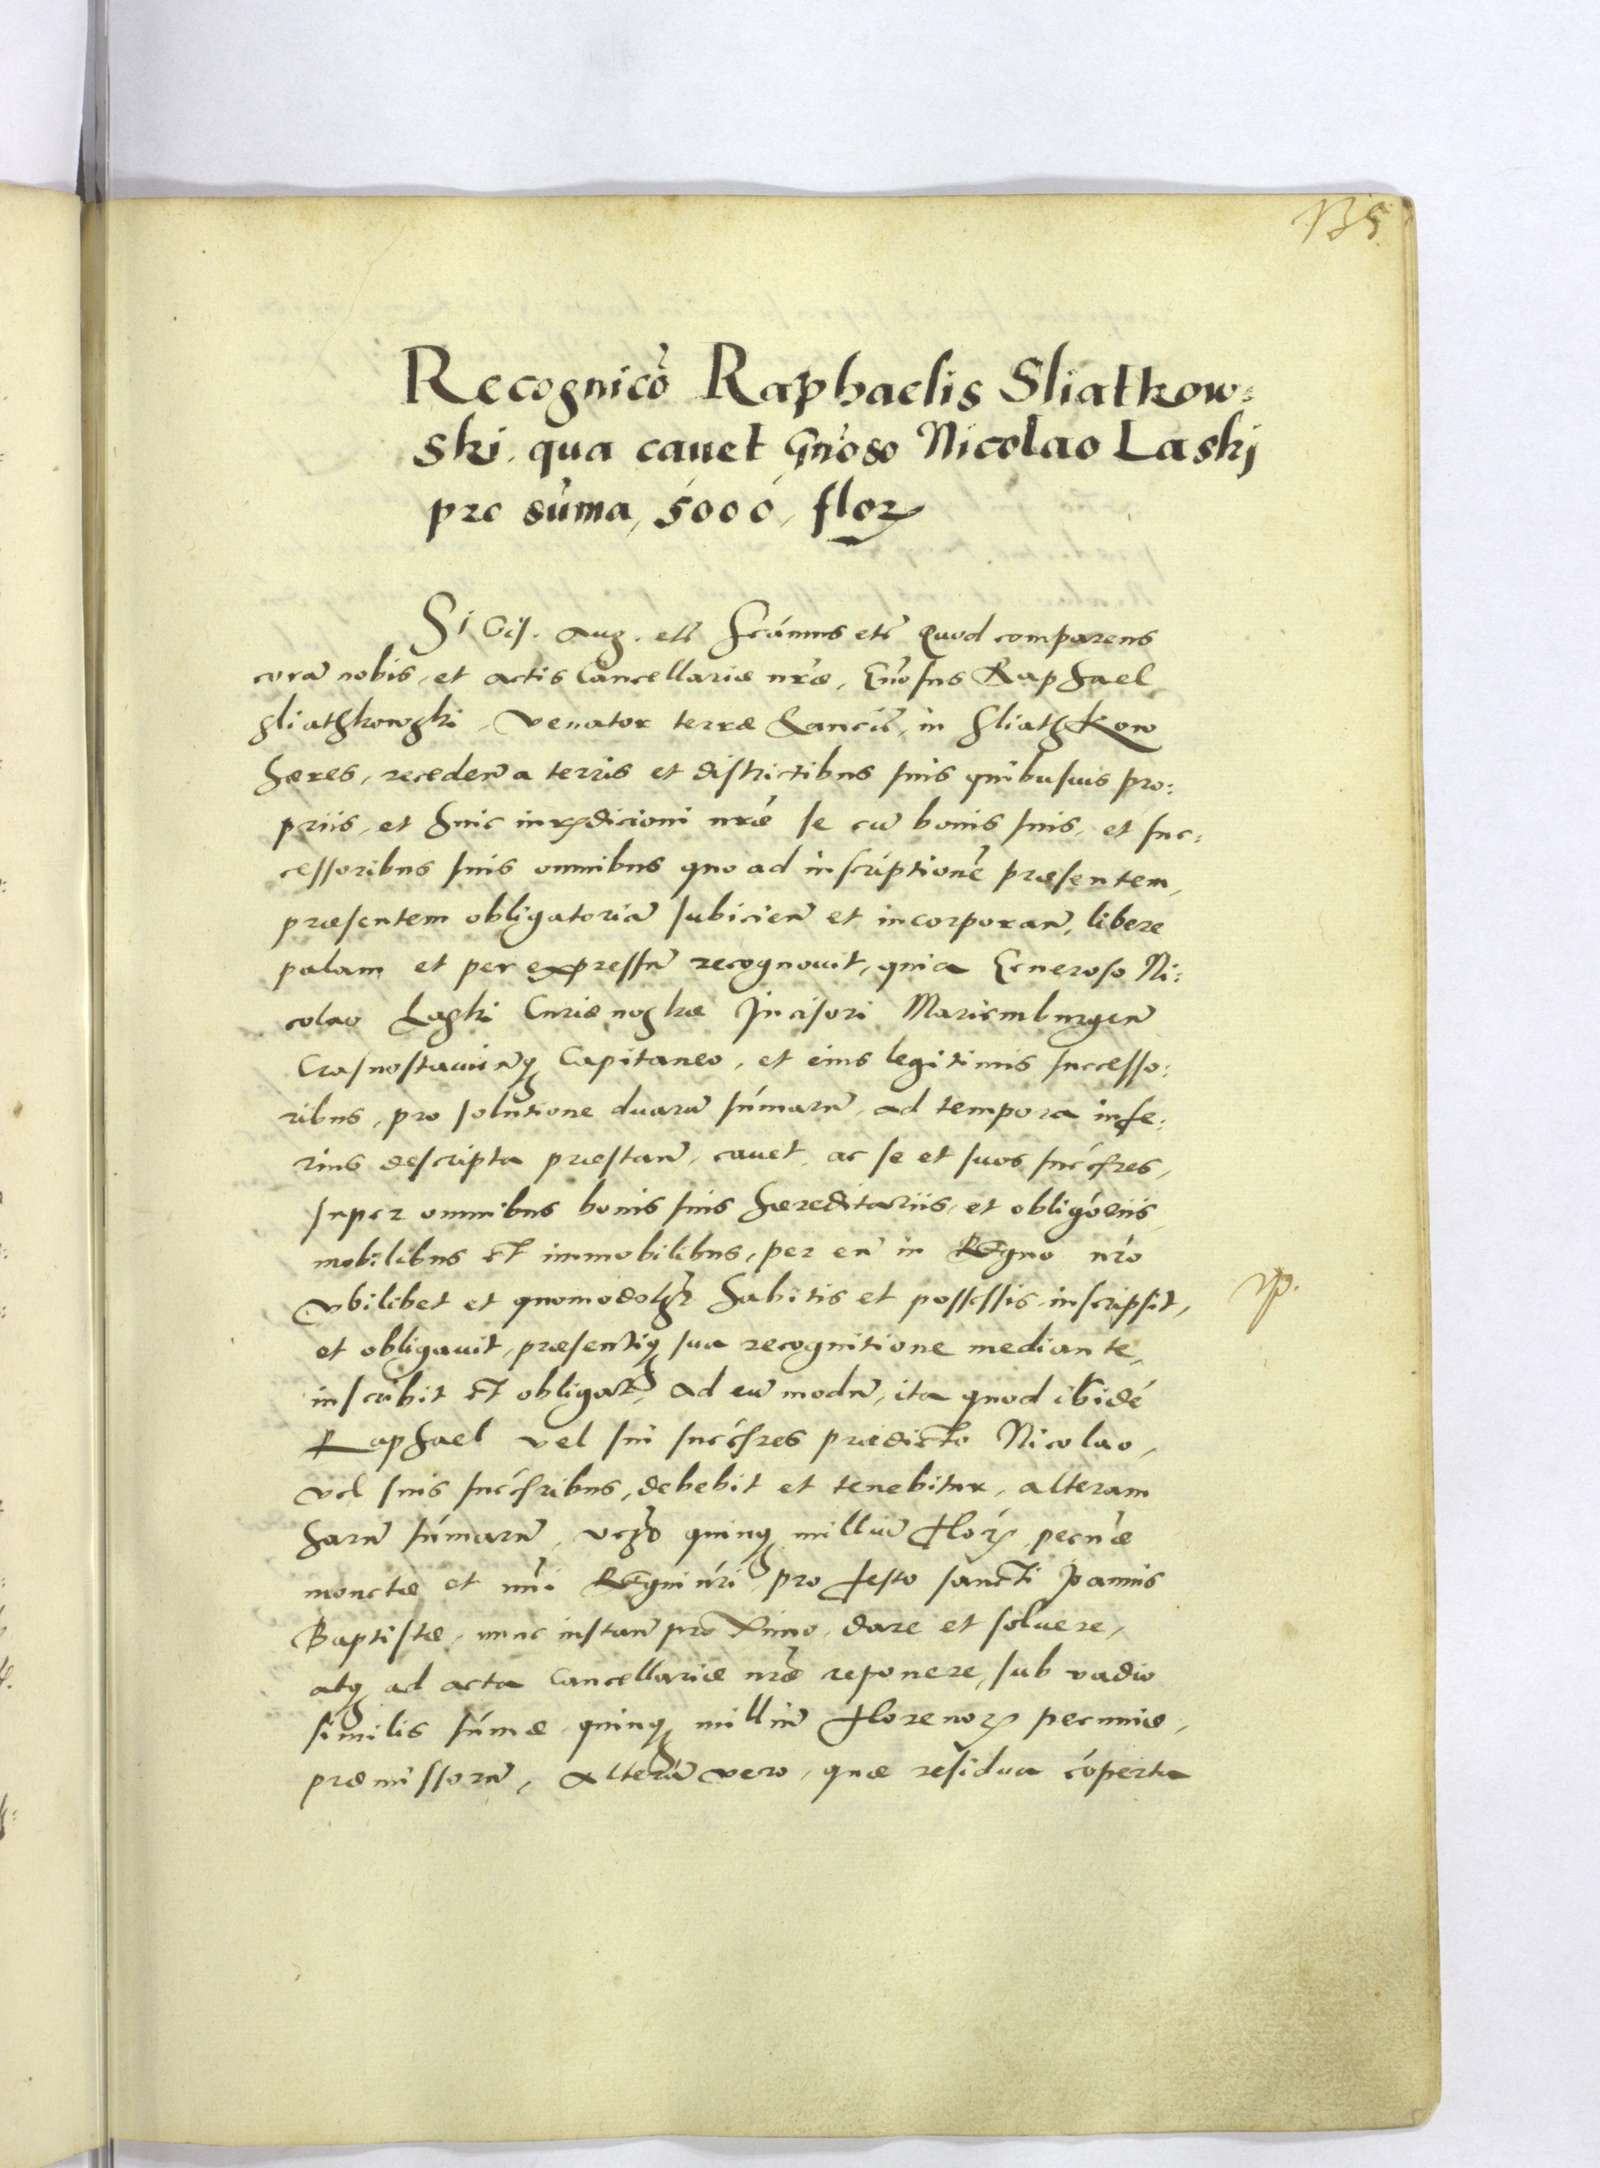 135
Recognic̃o Raphaelis Sliatkow:
ski qua cauet Gñoso Nicolao Laskj
pro sũma, 5000, flor
Sigis. Aug. etc̃ Scãmus etc̃ Quod comparens
corã nobis, et actis Cancellariæ nr̃æ, Gñosus Raphael
Sliathkowski, Venator terræ Lancic̃, in Sliathkow
hæres, recedeñ a terris et districtibus suis quibusuis pro:
priis, et huic iurisdicioni nr̃æ se cũ bonis suis, et suc:
cessoribus suis omnibus quo ad inscriptionẽ præsentem,
præsentem obligatoriã subicieñ et incorporañ, libere
palam et per expressũ recognouit, quia Generoso Ni:
colao Laski Curiæ nostræ Incisori Mariemburgeñ
Crasnostauieñq Capitaneo, et eius legitimis successo:
ribus, pro solutione duarũ sũmarũ, ad tempora infe:
rius descripta præstañ, cauet, ac se et suos succ̃sres,
super omnibus bonis suis hæreditariis, et obligõriis
mobilibus et immobilibus, per eũ in Regno nr̃o
vbilibet et quomodolz̃ habitis et possessis inscripsit,
et obligauit, præsentiq sua recognitione mediante,
inscribit et obligat, ad eũ modũ, ita quod ibidẽ
Raphael vel sui succ̃sres prædicto Nicolao,
vel suis succ̃sribus, debebit et tenebitur, alteram
harũ sũmarũ, vcz̃ quinq milliũ flor̃ pecũæ
monetæ et nũi Regni nr̃i pro festo sancti Joannis
Baptistæ, nunc instañ proximo, dare et soluere,
atq ad acta Cancellariæ nr̃æ reponere, sub vadio
similis sũmæ quinq milliũ florenor pecuniæ,
præmissorũ, alterã vero, quæ residua cõperta